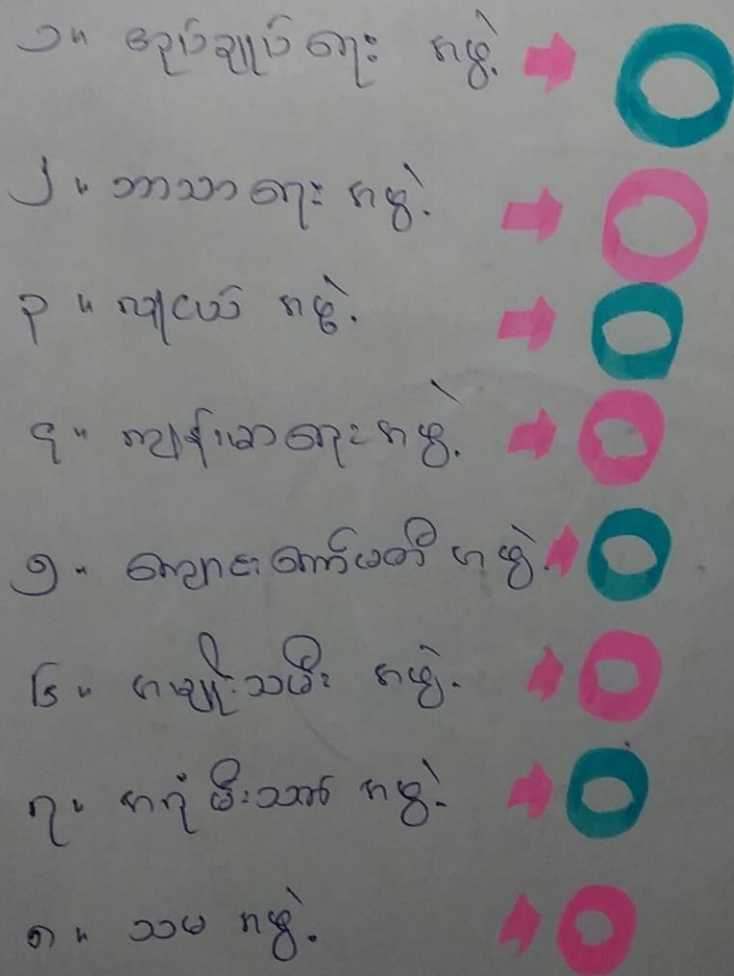 ၁။ အုပ်ချုပ်ရေး အဖွဲ့
၂။ ဘာသာရေး အဖွဲ့
၃။ လူငယ် အဖွဲ့
၄။ ကျန်းမာရေး အဖွဲ့
၅။ ကျောင်းကော်မတီ အဖွဲ့
၆။ အမျိုးသမီး အဖွဲ့
၇။ အရံမီးသတ် အဖွဲ့
၈။ သမ အဖွဲ့